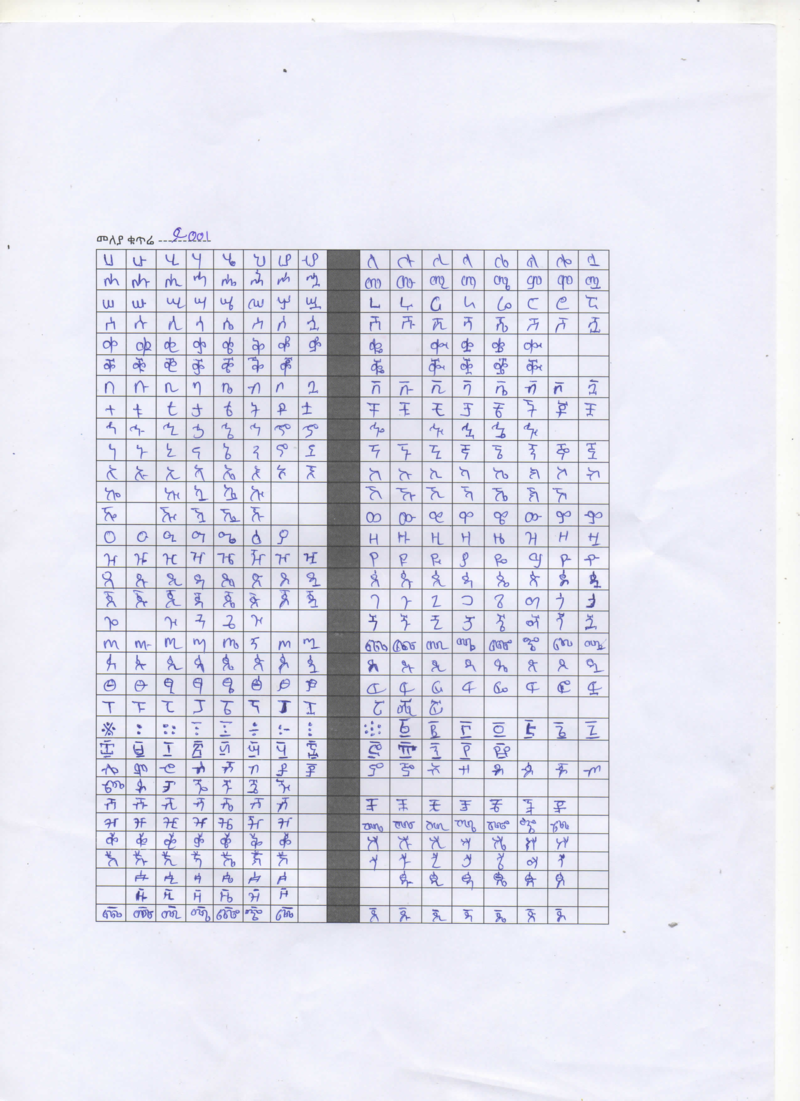 መለያ ቁጥሬ
ሀ ሁ ሂ ሃ ሄ ህ ሆ ሇ ለ ሉ ሊ ላ ሌ ል ሎ ሏ
ሐ ሑ ሒ ሓ ሔ ሕ ሖ ሗ መ ሙ ሚ ማ ሜ ም ሞ ሟ
ሠ ሡ ሢ ሣ ሤ ሥ ሦ ሧ ረ ሩ ሪ ራ ሬ ር ሮ ሯ
ሰ ሱ ሲ ሳ ሴ ስ ሶ ሷ ሸ ሹ ሺ ሻ ሼ ሽ ሾ ሿ
ቀ ቁ ቂ ቃ ቄ ቅ ቆ ቇ ቈ ቊ ቋ ቌ ቍ
ቐ ቑ ቒ ቓ ቔ ቕ ቖ ቘ ቚ ቛ ቜ ቝ
በ ቡ ቢ ባ ቤ ብ ቦ ቧ ቨ ቩ ቪ ቫ ቬ ቭ ቮ ቯ
ተ ቱ ቲ ታ ቴ ት ቶ ቷ ቸ ቹ ቺ ቻ ቼ ች ቾ ቿ
ኀ ኁ ኂ ኃ ኄ ኅ ኆ ኇ ኈ ኊ ኋ ኌ ኍ
ነ ኑ ኒ ና ኔ ን ኖ ኗ ኘ ኙ ኚ ኛ ኜ ኝ ኞ ኟ
አ ኡ ኢ ኣ ኤ እ ኦ ኧ ከ ኩ ኪ ካ ኬ ክ ኮ ኯ
ኰ ኲ ኳ ኴ ኵ ኸ ኹ ኺ ኻ ኼ ኽ ኾ
ዀ ዂ ዃ ዄ ዅ ወ ዉ ዊ ዋ ዌ ው ዎ ዏ
ዐ ዑ ዒ ዓ ዔ ዕ ዖ ዘ ዙ ዚ ዛ ዜ ዝ ዞ ዟ
ዠ ዡ ዢ ዣ ዤ ዥ ዦ ዧ የ ዩ ዪ ያ ዬ ይ ዮ ዯ
ደ ዱ ዲ ዳ ዴ ድ ዶ ዷ ዸ ዹ ዺ ዻ ዼ ዽ ዾ ዿ
ጀ ጁ ጂ ጃ ጄ ጅ ጆ ጇ ገ ጉ ጊ ጋ ጌ ግ ጎ ጏ
ጐ ጒ ጓ ጔ ጕ ጘ ጙ ጚ ጛ ጜ ጝ ጞ ጟ
ጠ ጡ ጢ ጣ ጤ ጥ ጦ ጧ ጨ ጩ ጪ ጫ ጬ ጭ ጮ ጯ
ጰ ጱ ጲ ጳ ጴ ጵ ጶ ጷ ጸ ጹ ጺ ጻ ጼ ጽ ጾ ጿ
ፀ ፁ ፂ ፃ ፄ ፅ ፆ ፇ ፈ ፉ ፊ ፋ ፌ ፍ ፎ ፏ
ፐ ፑ ፒ ፓ ፔ ፕ ፖ ፗ ፘ ፙ ፚ
፠ ፡ ። ፣ ፤ ፥ ፦ ፧ ፨ ፩ ፪ ፫ ፬ ፭ ፮ ፯
፰ ፱ ፲ ፳ ፴ ፵ ፶ ፷ ፸ ፹ ፺ ፻ ፼
ⶀ ⶁ ⶂ ⶃ ⶄ ⶅ ⶆ ⶇ ⶈ ⶉ ⶊ ⶋ ⶌ ⶍ ⶎ ⶏ
ⶐ ⶑ ⶒ ⶓ ⶔ ⶕ ⶖ
ⶠ ⶡ ⶢ ⶣ ⶤ ⶥ ⶦ ⶨ ⶩ ⶪ ⶫ ⶬ ⶭ ⶮ
ⶰ ⶱ ⶲ ⶳ ⶴ ⶵ ⶶ ⶸ ⶹ ⶺ ⶻ ⶼ ⶽ ⶾ
ⷀ ⷁ ⷂ ⷃ ⷄ ⷅ ⷆ ⷈ ⷉ ⷊ ⷋ ⷌ ⷍ ⷎ
ⷐ ⷑ ⷒ ⷓ ⷔ ⷕ ⷖ ⷘ ⷙ ⷚ ⷛ ⷜ ⷝ ⷞ
ꬁ ꬂ ꬃ ꬄ ꬅ ꬆ ꬉ ꬊ ꬋ ꬌ ꬍ ꬎ
ꬑ ꬒ ꬓ ꬔ ꬕ ꬖ
ꬠ ꬡ ꬢ ꬣ ꬤ ꬥ ꬦ ꬨ ꬩ ꬪ ꬫ ꬬ ꬭ ꬮ